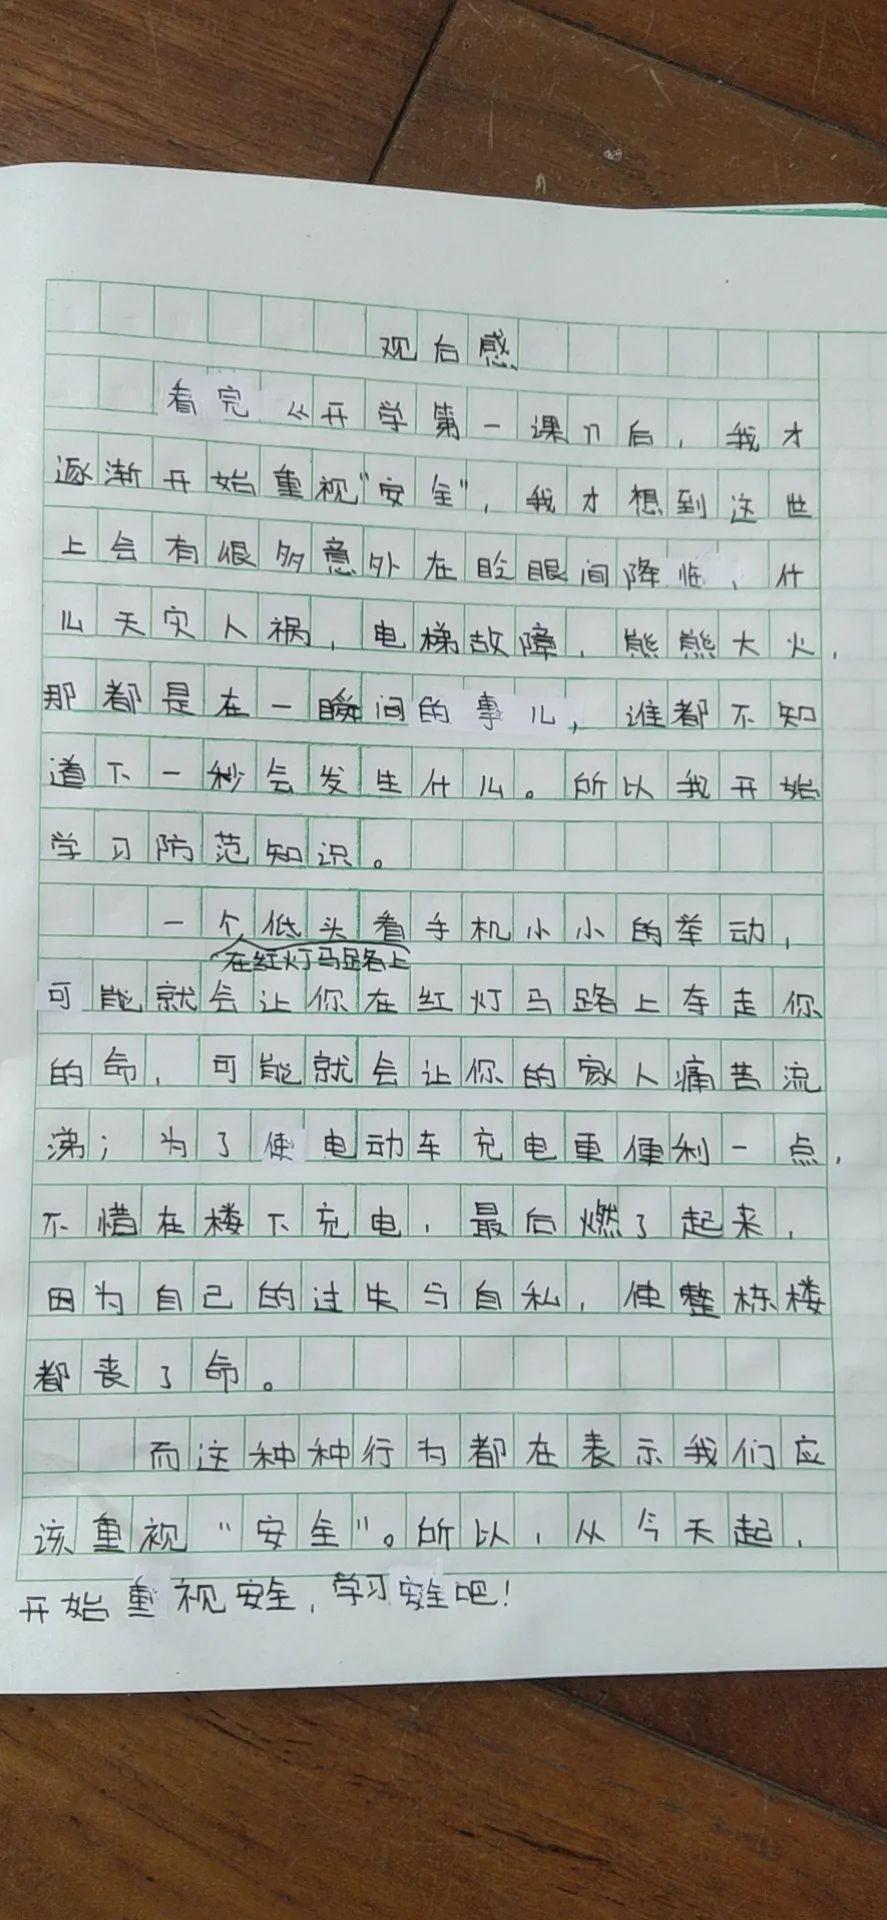 观后感
看完《开学第一课》后，我才
逐渐开始重视“安全”，我才想到这世
上会有很多意外在眨眼间降临，什
么天灾人祸，电梯故障，熊熊大火，
那都是在一瞬间的事儿，谁都不知
道下一秒会发生什么。所以我开始
学习防范知识。
一个低头看手机小小的举动，
在红灯马路上
可能就会让你在红灯马路上夺走你
的命，可能就会让你的家人痛苦流
涕；为了使电动车充电更便利一点，
不惜在楼下充电，最后燃了起来，
因为自己的过失与自私，使整栋楼
都丧了命。
而这种种行为都在表示我们应
该重视“安全”。所以，从今天起，
开始重视安全，学习安全吧！